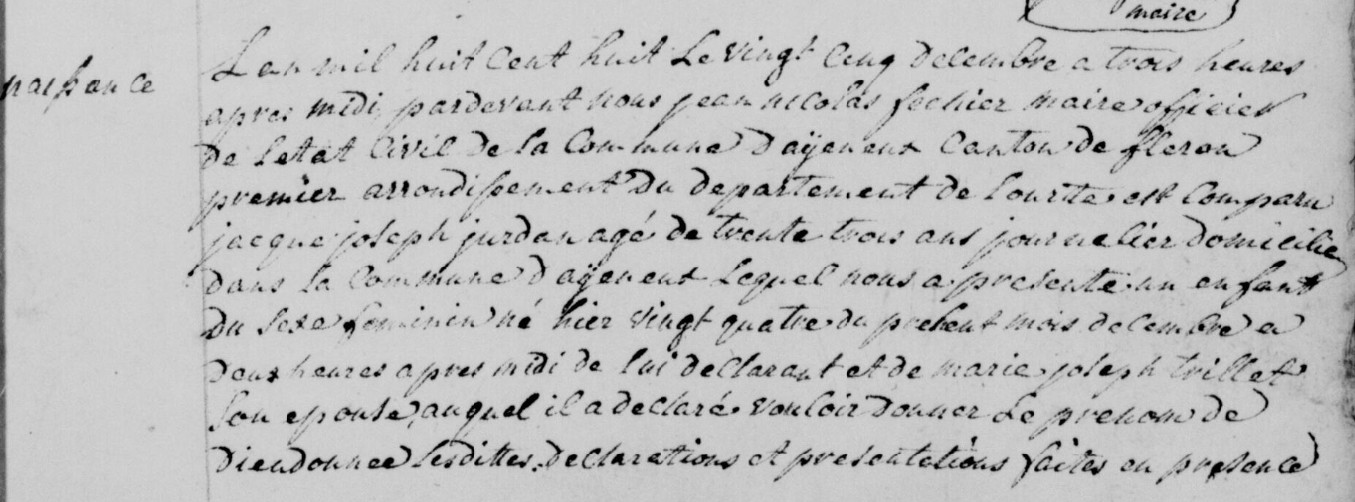 maire
naissance
Lan mil huit Cent huit Le vingt Cinq decembre a trois heures
apres midi pardevant nous jean nicolas fechier maire officier
De letat Civil de la Commune Dayeneux Canton de fleron
premier arrondissement Du departement de Lourte est Comparu
jacque joseph jurdan agé de trente trois ans journelier Domicilie
dans la Commune Dayeneux Lequel nous a presente un enfant
Du sexe feminin né hier vingt quatre du present mois decembre a
deux heures apres midi de lui declarant et de marie joseph trillet
Son epouse auquel il a declaré vouloir Donner Le prenom de
Dieudonnee Lesdittes Declarations et presentations faites en presence